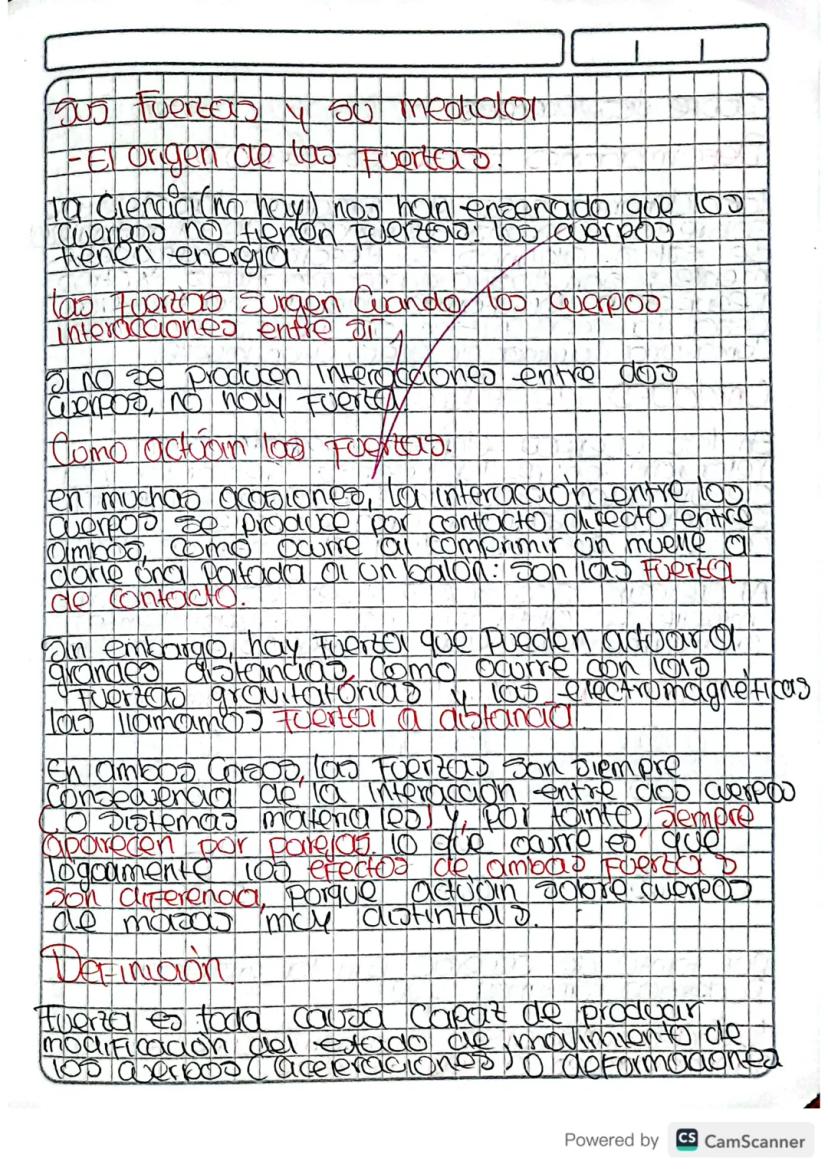 Sus Fuerzas y su medidor
-El origen de las Fuerzas.
la Ciencia (no hay) nos han enseñado que los
cuerpos no tienen Fuerzas: los cuerpos
tienen energia.
las Fuerzas surgen Cuando los cuerpos
interacciones entre sí
si no se producen interacciones entre dos
cuerpos, no hay Fuerza.
Como actúan las Fuerzas.
en muchas ocasiones, la interacción entre los
cuerpos se produce por contacto directo entre
ambos, como ocurre al comprimir un muelle a
darle una Patada a un balon: son las Fuerza
de contacto.
Sin embargo, hay Fuerza que Pueden actuar a
grandes distancias, como ocurre con las
Fuerzas gravitatorias y las electromagnéticas
las llamamos Fuerza a distancia
En ambos Casos, las Fuerzas son siempre
consecuencia de la interacción entre dos cuerpos
(o sistemas materiales) y, por tanto, siempre
aparecen por parejas. lo que ocurre es que
logcamente los efectos de ambas Fuerzas
son diferencia, porque actúan sobre cuerpos
de masas muy distintas.
Definición
Fuerza es toda causa Capaz de producir
modificación del estado de movimiento de
los cuerpos (aceleraciones) o deformaciones
Powered by CS CamScanner